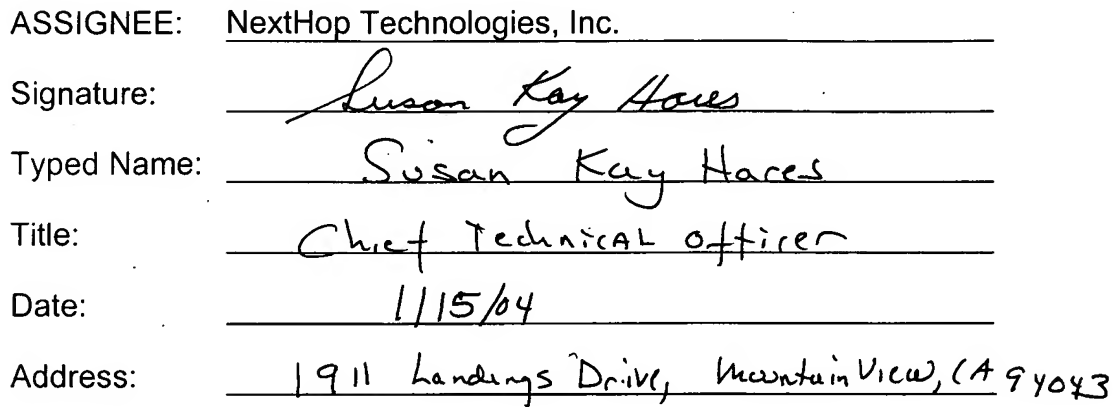 ASSIGNEE: NextHop Technologies, Inc.
Signature: Susan Kay Hares
Typed Name: Susan Kay Hares
Title: Chief Technical Officer
Date: 1/15/04
Address: 1911 Landings Drive, Mountain View, CA 94043